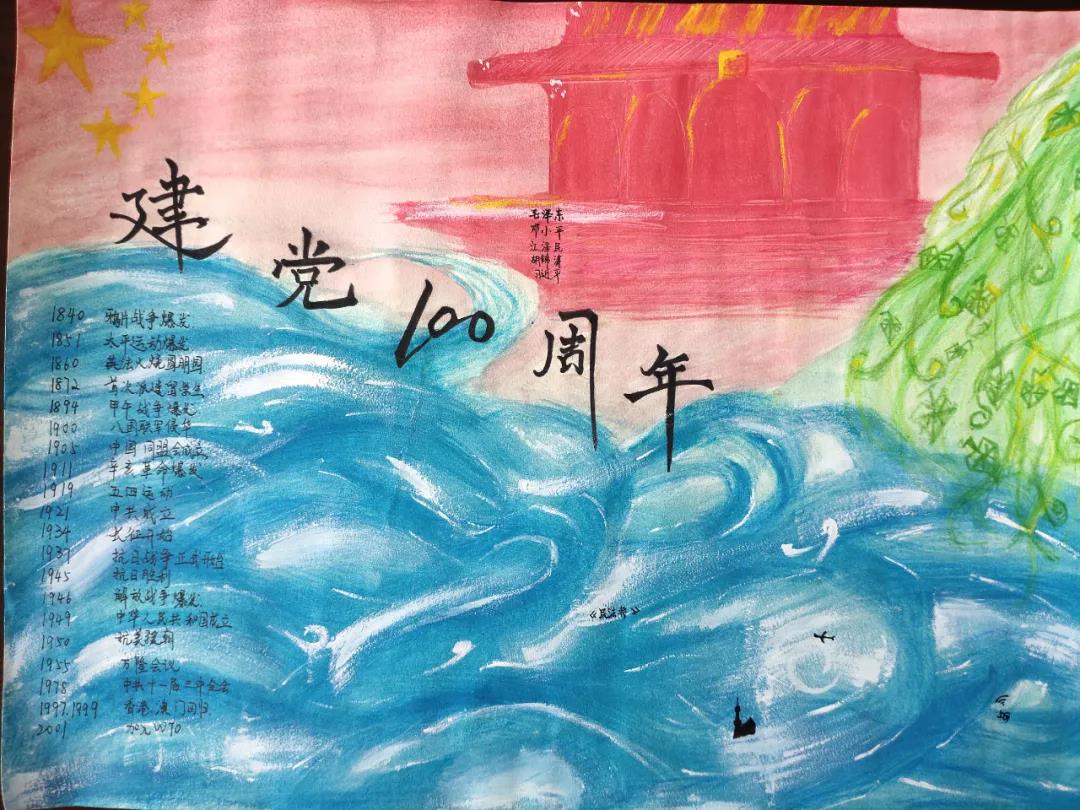 建党100周年
毛泽东
邓小平
江泽民
胡锦涛
习近平
1840 鸦片战争爆发
1851 太平运动爆发
1860 英法火烧圆明园
1872 首次派遣留学生
1894 甲午战争爆发
1900 八国联军侵华
1905 中国同盟会成立
1911 辛亥革命爆发
1919 五四运动
1921 中共成立
1934 长征开始
1937 抗日战争正式开始
1945 抗日胜利
1946 解放战争爆发
1949 中华人民共和国成立
1950 抗美援朝
1955 万隆会议
1978 中共十一届三中全会
1997.1999 香港.澳门回归
2001 加入WTO
《民法典》
5G